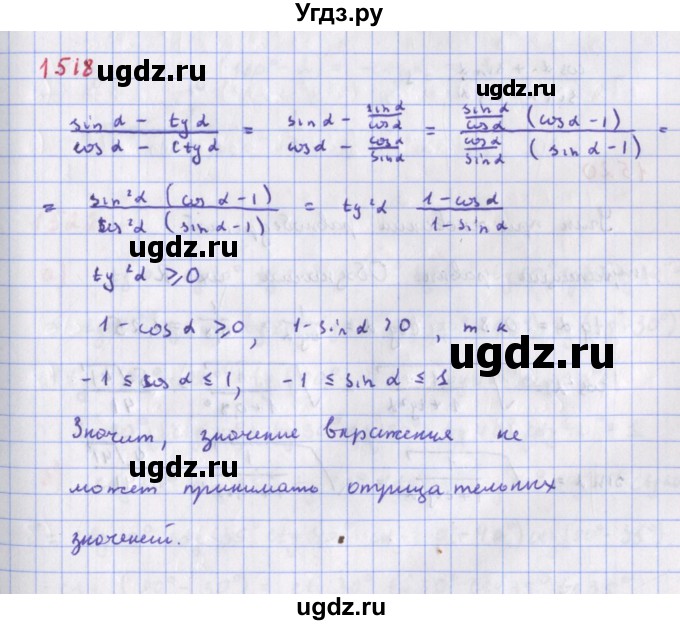 Угдз.ру
1518
ugdz.ru
sin α − tg α / cos α − ctg α = sin α − sin α/cos α / cos α − cos α/sin α = sin α/cos α (cos α − 1) / cos α/sin α (sin α − 1) =
= sin²α (cos α − 1) / cos²α (sin α − 1) = tg²α 1 − cos α / 1 − sin α
ugdz.ru
tg²α ⩾ 0
1 − cos α ⩾ 0, 1 − sin α > 0, т.к
ugdz.ru
−1 ≤ cos α ≤ 1, −1 ≤ sin α ≤ 1
Значит, значение выражения не
ugdz.ru
может принимать отрицательных
значений.
ugdz.ru